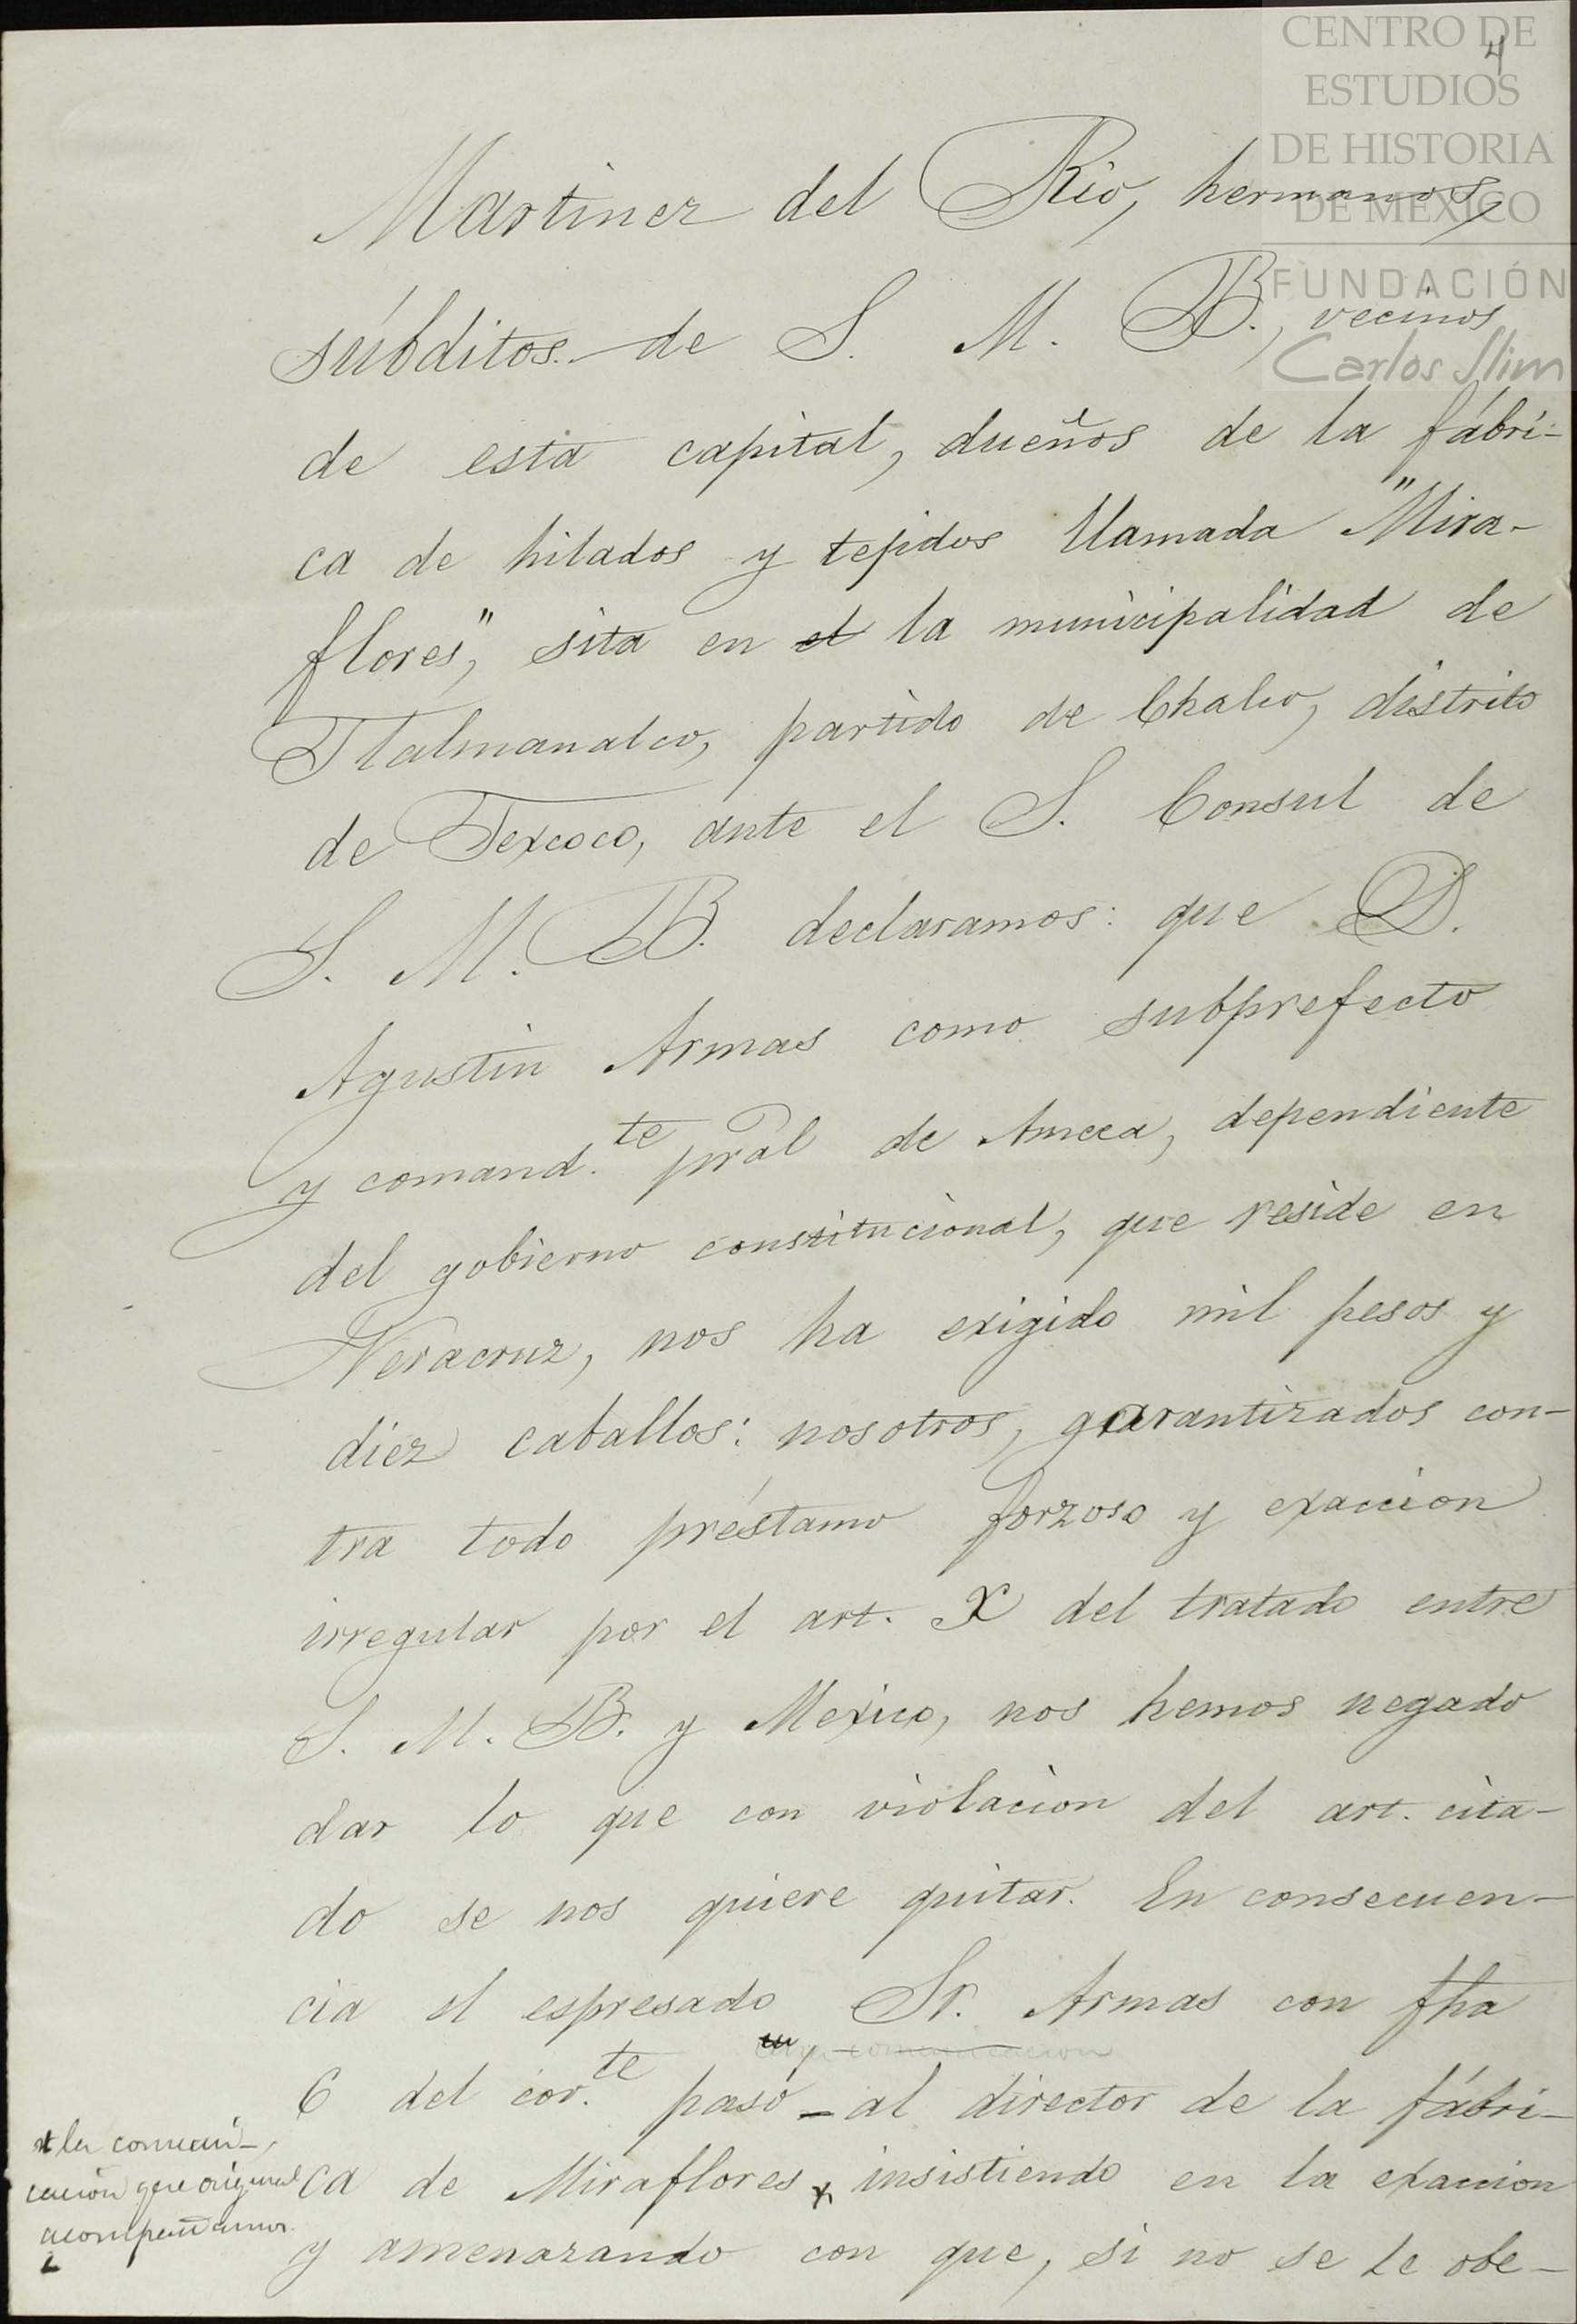 CENTRO DE
ESTUDIOS
DE HISTORIA
DE MÉXICO
FUNDACIÓN
Carlos Slim
4
Martinez del Rio, hermanos,
súbditos de S. M. B., vecinos
de esta capital, dueños de la fábri-
ca de hilados y tejidos llamada "Mira-
flores," sita en el la municipalidad de
Tlalmanalco, partido de Chalco, distrito
de Texcoco, ante el S. Consul de
S. M. B. declaramos: que D.
Agustin Armas como subprefecto
y comand.te pral de Ameca, dependiente
del gobierno constitucional, que reside en
Veracruz, nos ha exigido mil pesos y
diez caballos: nosotros, garantizados con-
tra todo préstamo forzoso y exaccion
irregular por el art. X del tratado entre
S. M. B. y Mexico, nos hemos negado
dar lo que con violacion del art. cita-
do se nos quiere quitar. En consecuen-
cia el espresado Sr. Armas con fha
comunicacion
6 del cor.te pasó - al director de la fábri-
ca de Miraflores x insistiendo en la exaccion
y amenazando con que, si no se le obe-
x la comuni-
cacion que original
acompañamos.